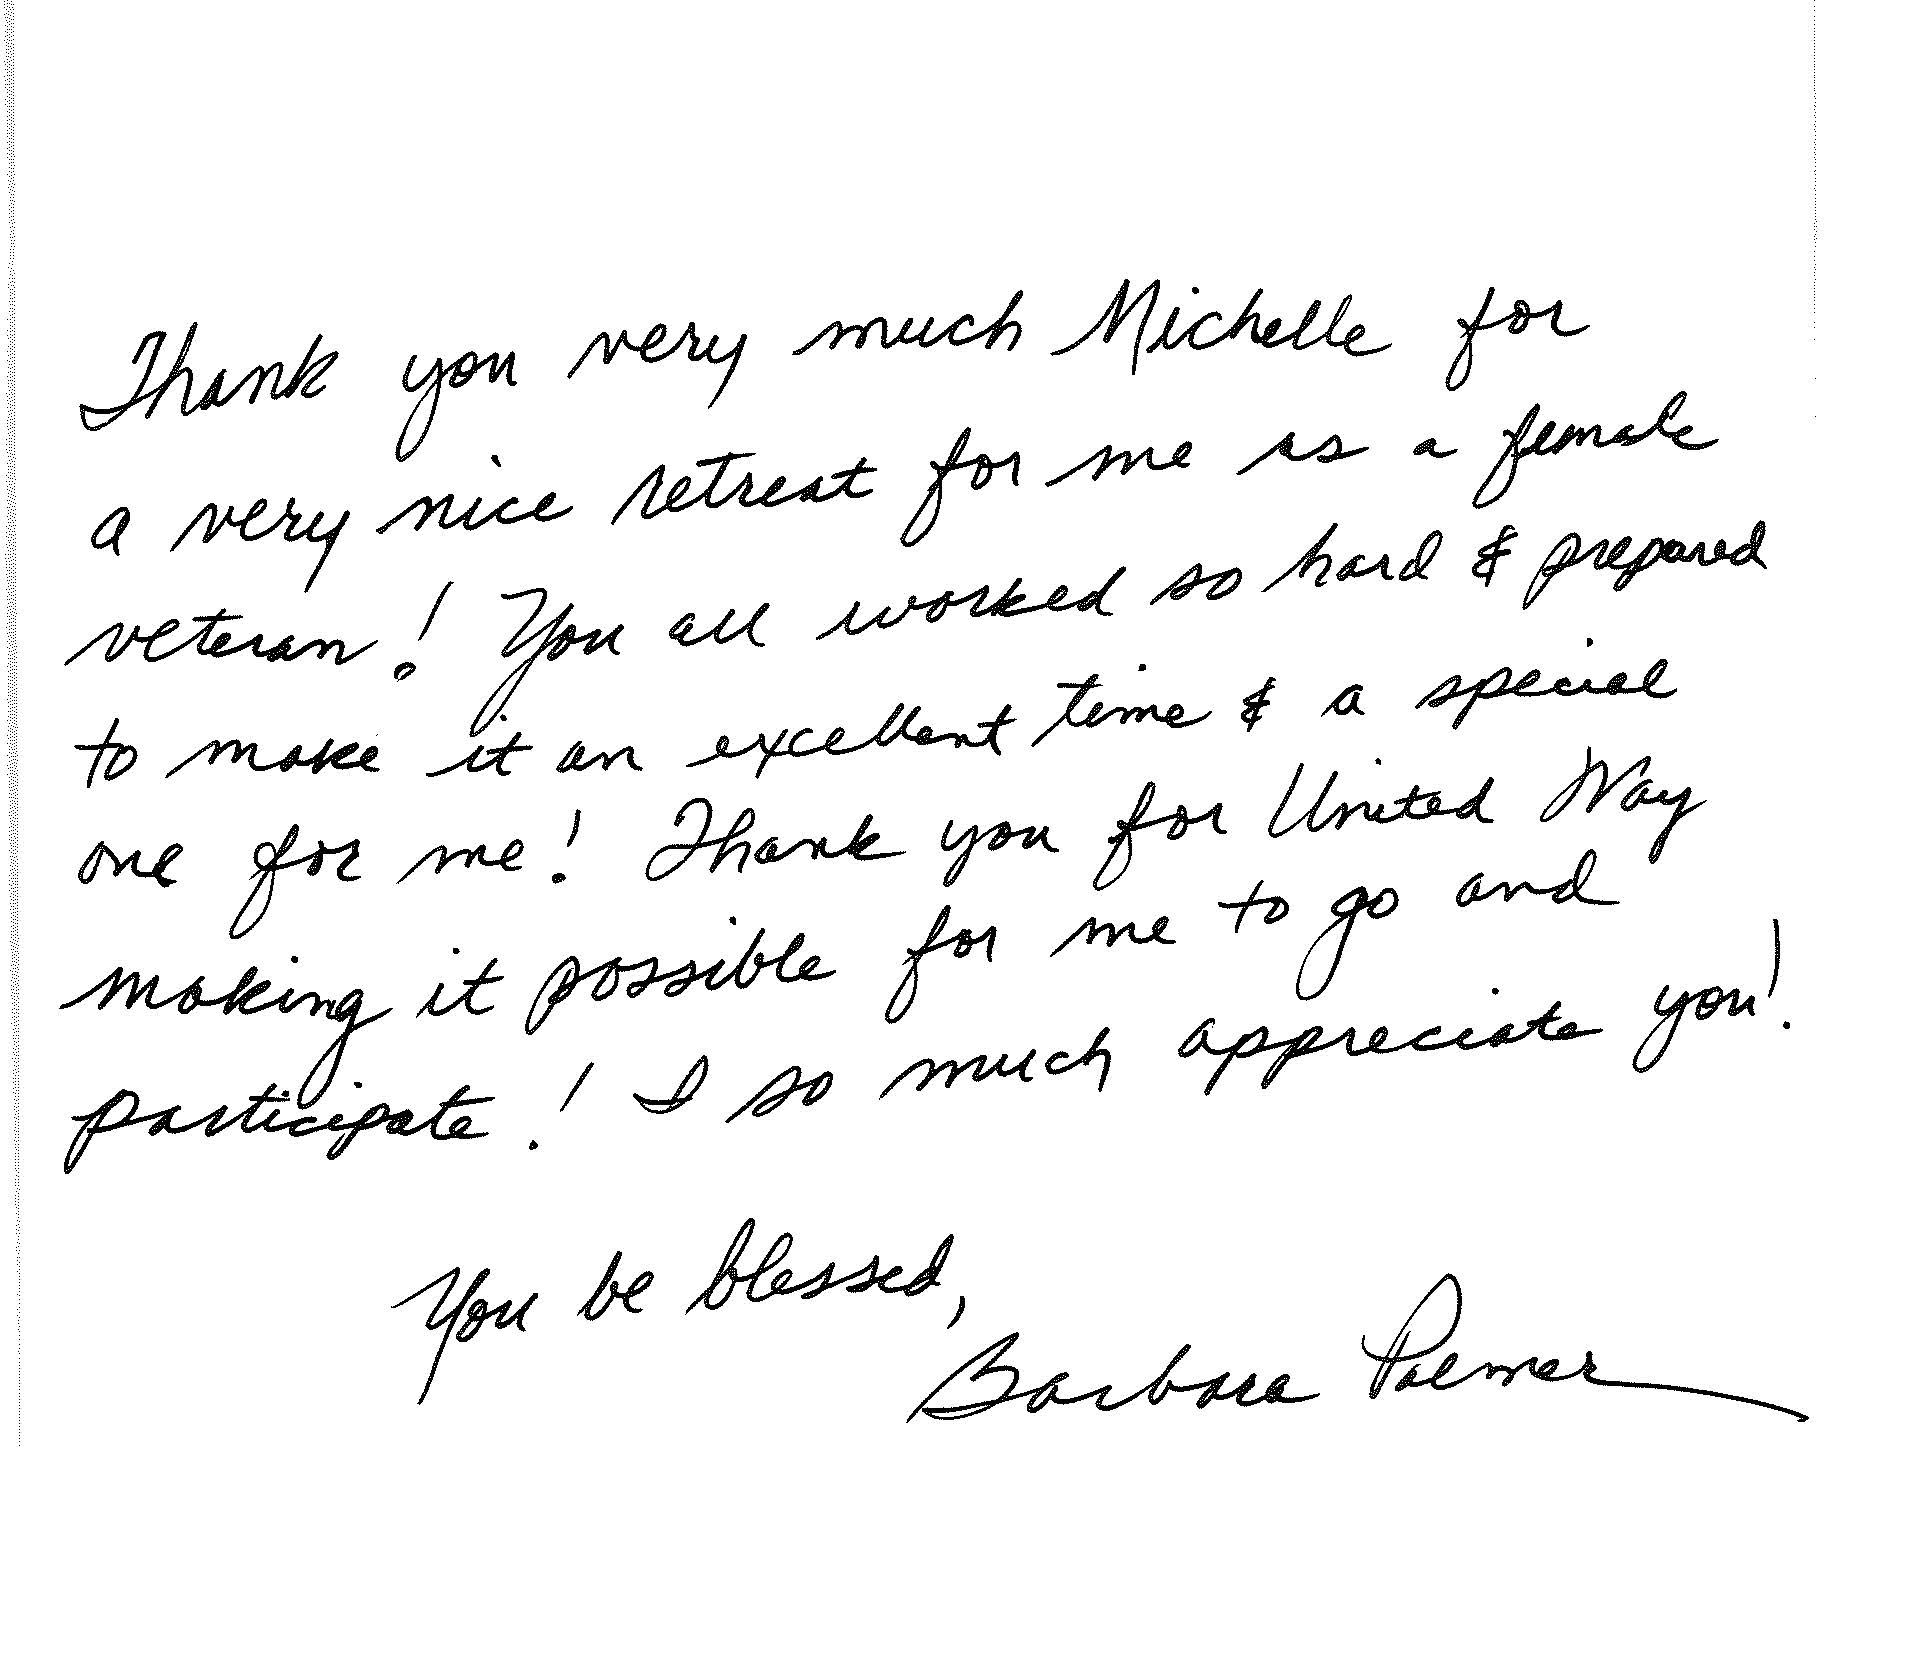 Thank you very much Michelle for
a very nice retreat for me as a female
veteran! You all worked so hard & prepared
to make it an excellent time & a special
one for me! Thank you for United Way
making it possible for me to go and
participate! I so much appreciate you!
You be blessed,
Barbara Palmer